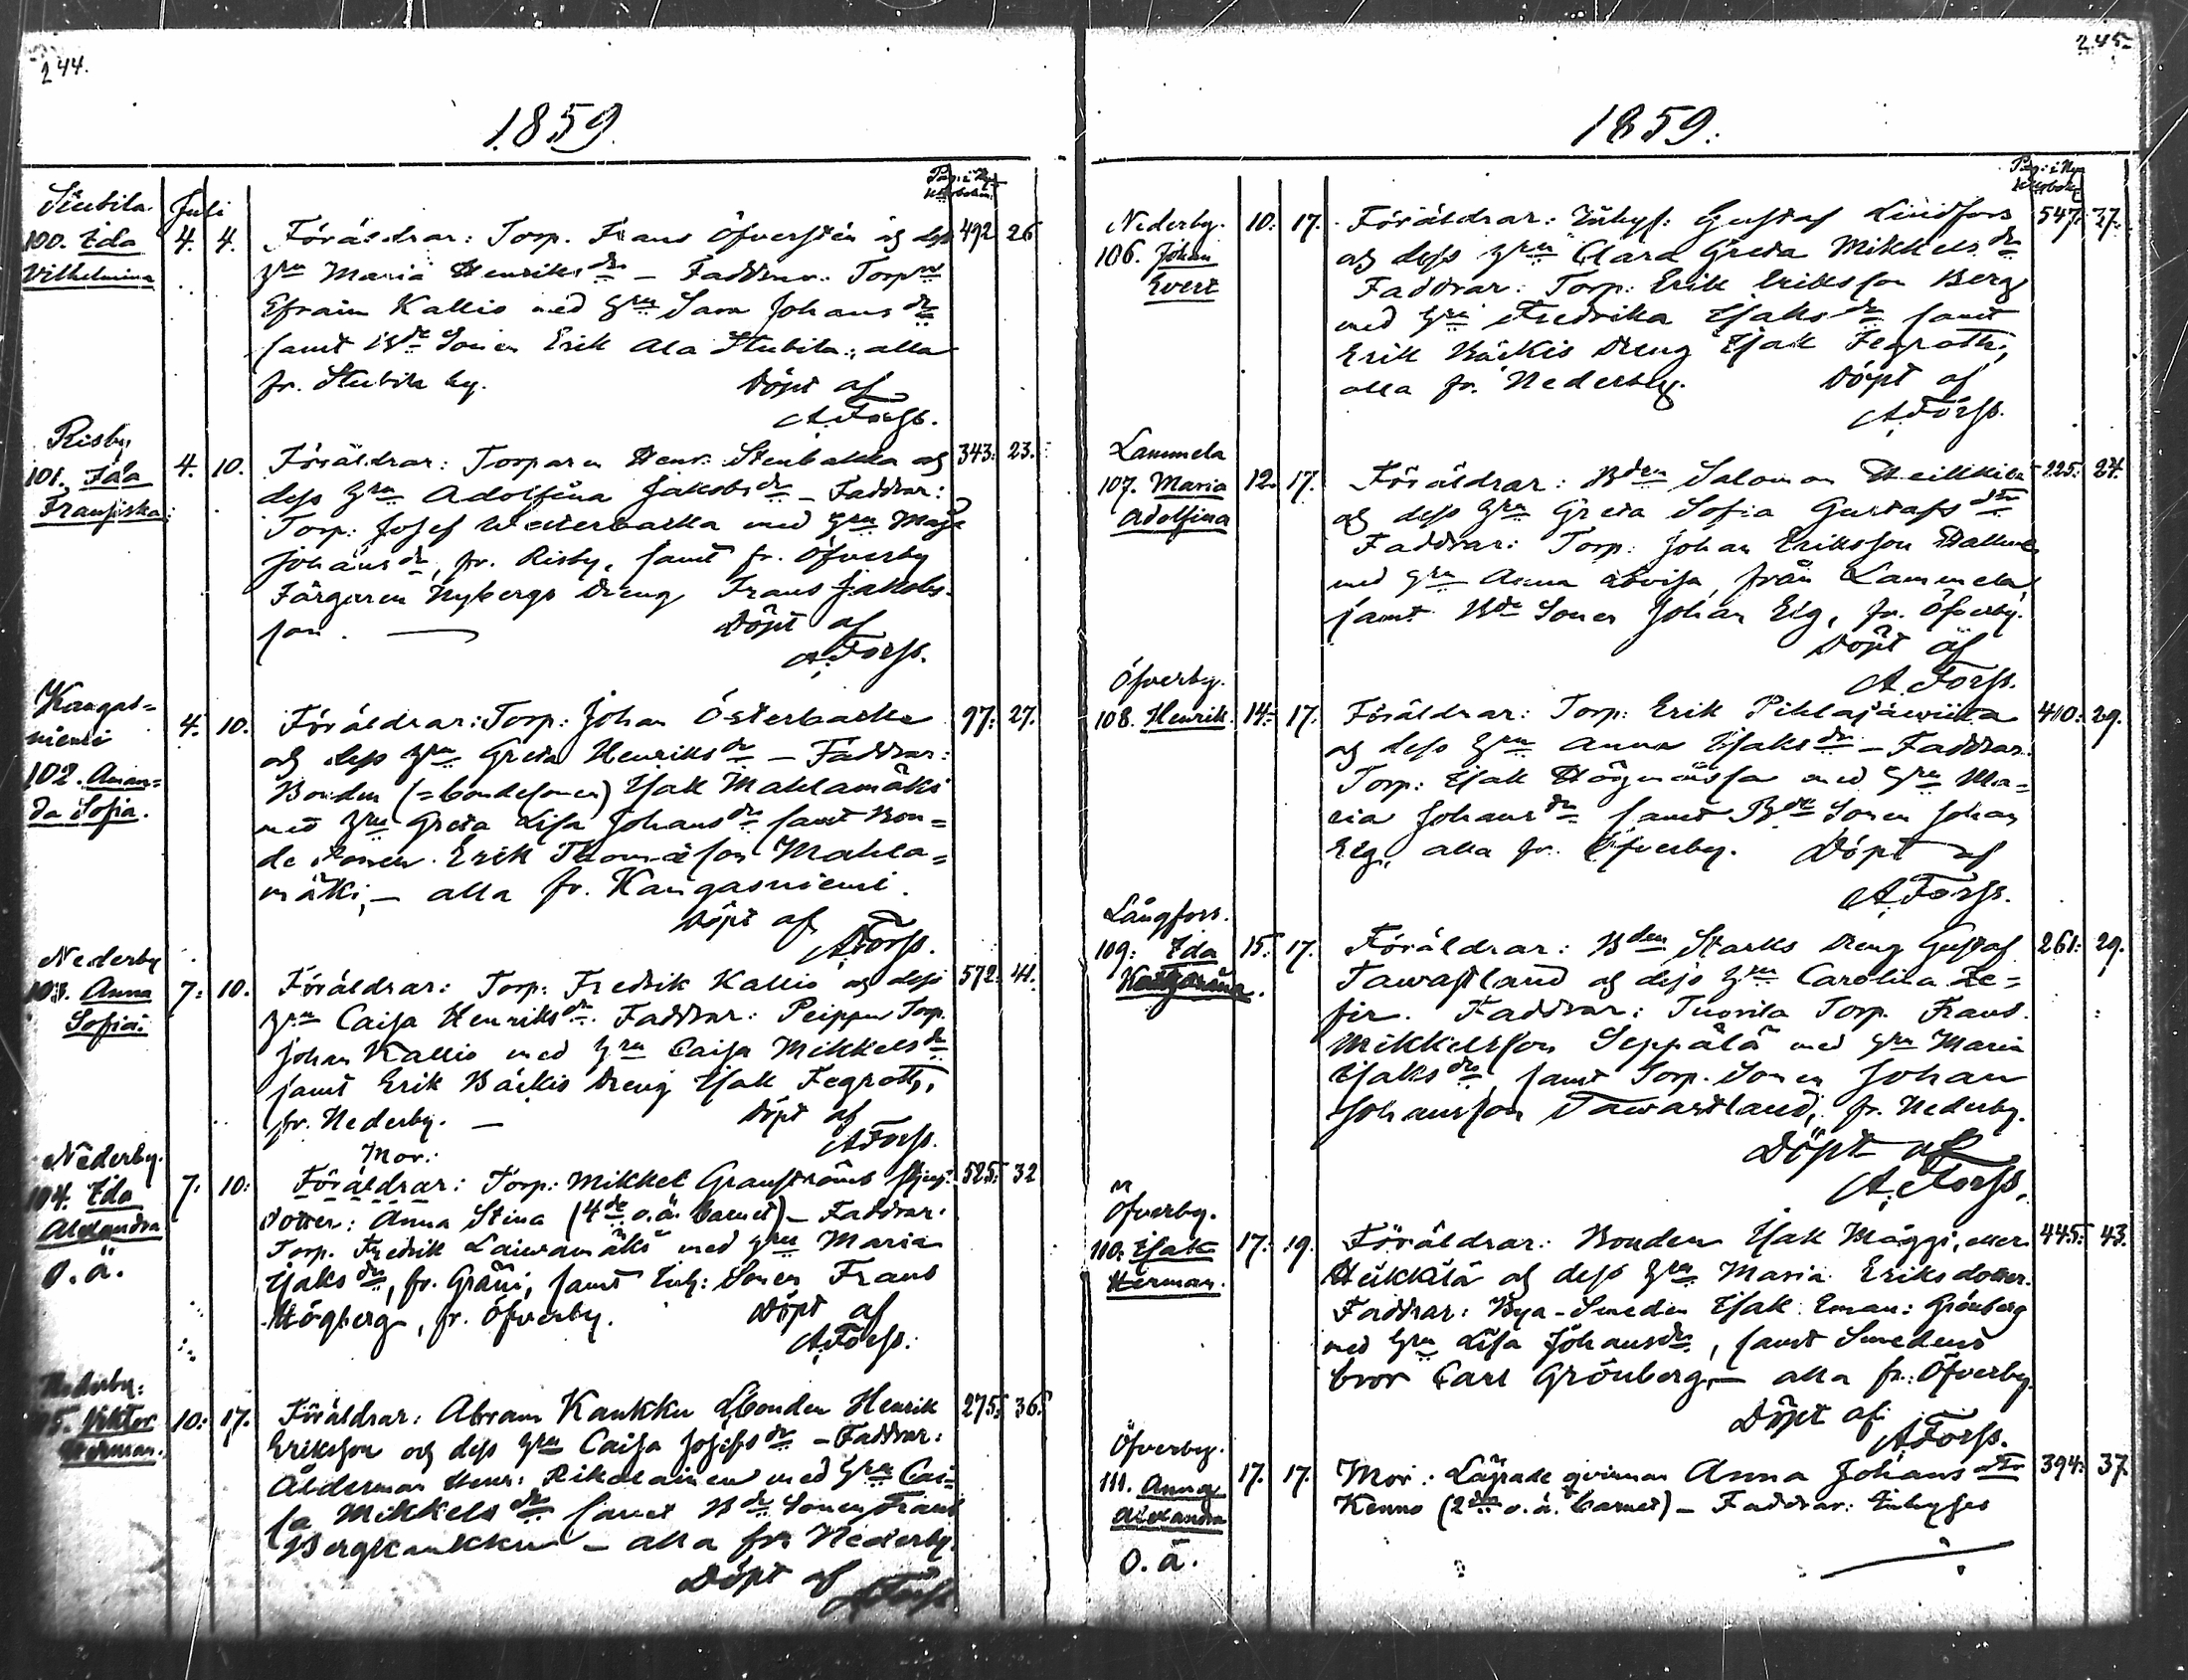 244.
1859.
Pag: i Nya
Kkoboken
Stubila. Juli
100. Ida 4. 4. Föräldrar: Torp. Frans Öfversten och dess 492 26
Vilhelmina hru Maria Henriksdr — Faddrar: Torpn
Efraim Kallio med hru Sara Johansdr
samt Bde Sonen Erik Ala Stubila, alla
fr. Stubila by. Döpt af
A. Forss.
Risby
101. Ida 4. 10. Föräldrar: Torparen Henr. Stenbakka och 343: 23.
Fransiska: dess hru Adolfina Jakobsdr — Faddrar:
Torp: Josef Westerbacka med hru Maja
Johansdr, fr. Risby, samt fr. Öfverby
Färgaren Nybergs dreng Frans Jakobs-
son. — Döpt af
A. Forss.
Kangas=
niemi 4. 10. Föräldrar: Torp: Johan Österbacka 97: 27.
102. Aman= och dess hru Greta Henriksdr — Faddrar:
da Sofia. Bonden (= bondesonen) Isak Mahlamäki
med hru Greta Lisa Johansdr samt Bon=
de sonen Erik Thomasson Mahla=
mäki, — alla fr. Kangasniemi.
Döpt af
A. Forss.
Nederby
103. Anna 7: 10. Föräldrar: Torp: Fredrik Kallio och dess 572: 41.
Sofia: hru Caisa Henriksdr. Faddrar: Peippu Torp.
Johan Kallio med hru Caisa Mikkelsdr
samt Erik Bäckis dreng Isak Fegroth,
fr. Nederby. — Döpt af
A. Forss.
Nederby. Mor:
104. Ida 7: 10: Föräldrar: Torp: Mikkel Granströms 525: 32
Alexandra dotter: Anna Stina (4de o.ä. barnet) — Faddrar:
O. ä. Torp. Fredrik Laiwamäki med hru Maria
Isaksdr, fr. Gräni, samt Inh: Sonen Frans
Högberg, fr. Öfverby. Döpt af
A. Forss:
Nederby:
105. Viktor 10: 17. Föräldrar: Abram Kaukku Åbonden Henrik 275: 36.
Herman. Eriksson och dess hru Caisa Josefsdr — Faddrar:
Ålderman Henr: Rikalainen med hru Cai-
sa Mikkelsdr samt Bde Sonen Frans
Bergkaukku — alla fr. Nederby.
Döpt af A. Forss
245.
1859.
Pag: i Nya
Kkoboken
Nederby. 10: 17. Föräldrar: Inhys: Gustaf Lindfors 547: 37.
106. Johan och dess hru Clara Greta Mikkelsdr
Evert Faddrar: Torp: Erik Eriksson Berg
med hru Fredrika Isaksdr samt
Erik Bäckis dreng Isak Fegroth,
alla fr. Nederby. Döpt af
A. Forss.
Lammela
107. Maria 12. 17. Föräldrar: Bden Salomon Heikkilä 225: 24.
Adolfina och dess hru Greta Sofia Gustafsdtr
Faddrar: Torp: Johan Eriksson
med hru Anna Lovisa, från Lammela,
samt Bde Sonen Johan Elg, fr. Öfverby.
Döpt af
A. Forss.
Öfverby.
108. Henrik. 14: 17. Föräldrar: Torp: Erik Pihlajawiita 410: 29.
och dess hru Anna Isaksdr — Faddrar:
Torp: Isak Högmansa med hru Ma=
ria Johansdr samt Bde Sonen Johan
Elg, alla fr. Öfverby. Döpt af
A. Forss.
Långfors.
109: Ida 15: 17. Föräldrar: Bden Starks dreng Gustaf 261: 29.
Katharina. Tawastland och dess hru Carolina Ze=
fir. Faddrar: Tuorila Torp. Frans
Mikkelsson Seppälä med hru Maria
Isaksdr, samt Torp. Sonen Johan
Johansson Tawastland, fr. Nederby.
Döpt af
A. Forss.
Öfverby.
110. Isak 17. 19. Föräldrar: Bonden Isak Mäggi, eller 445: 43.
Herman. Heikkilä och dess hru Maria Eriksdotter.
Faddrar: Bya-Smeden Isak Eman: Grönberg
med hru Lisa Johansdr, samt Smedens
bror Carl Grönberg, — alla fr: Öfverby.
Döpt af
A. Forss.
Öfverby.
111. Anna 17. 17. Mor: Lägrade qvinnan Anna Johansdtr 394: 37.
Alexandra Kenno (2dra o.ä. barnet) — Faddrar: Inhyses
O. ä.